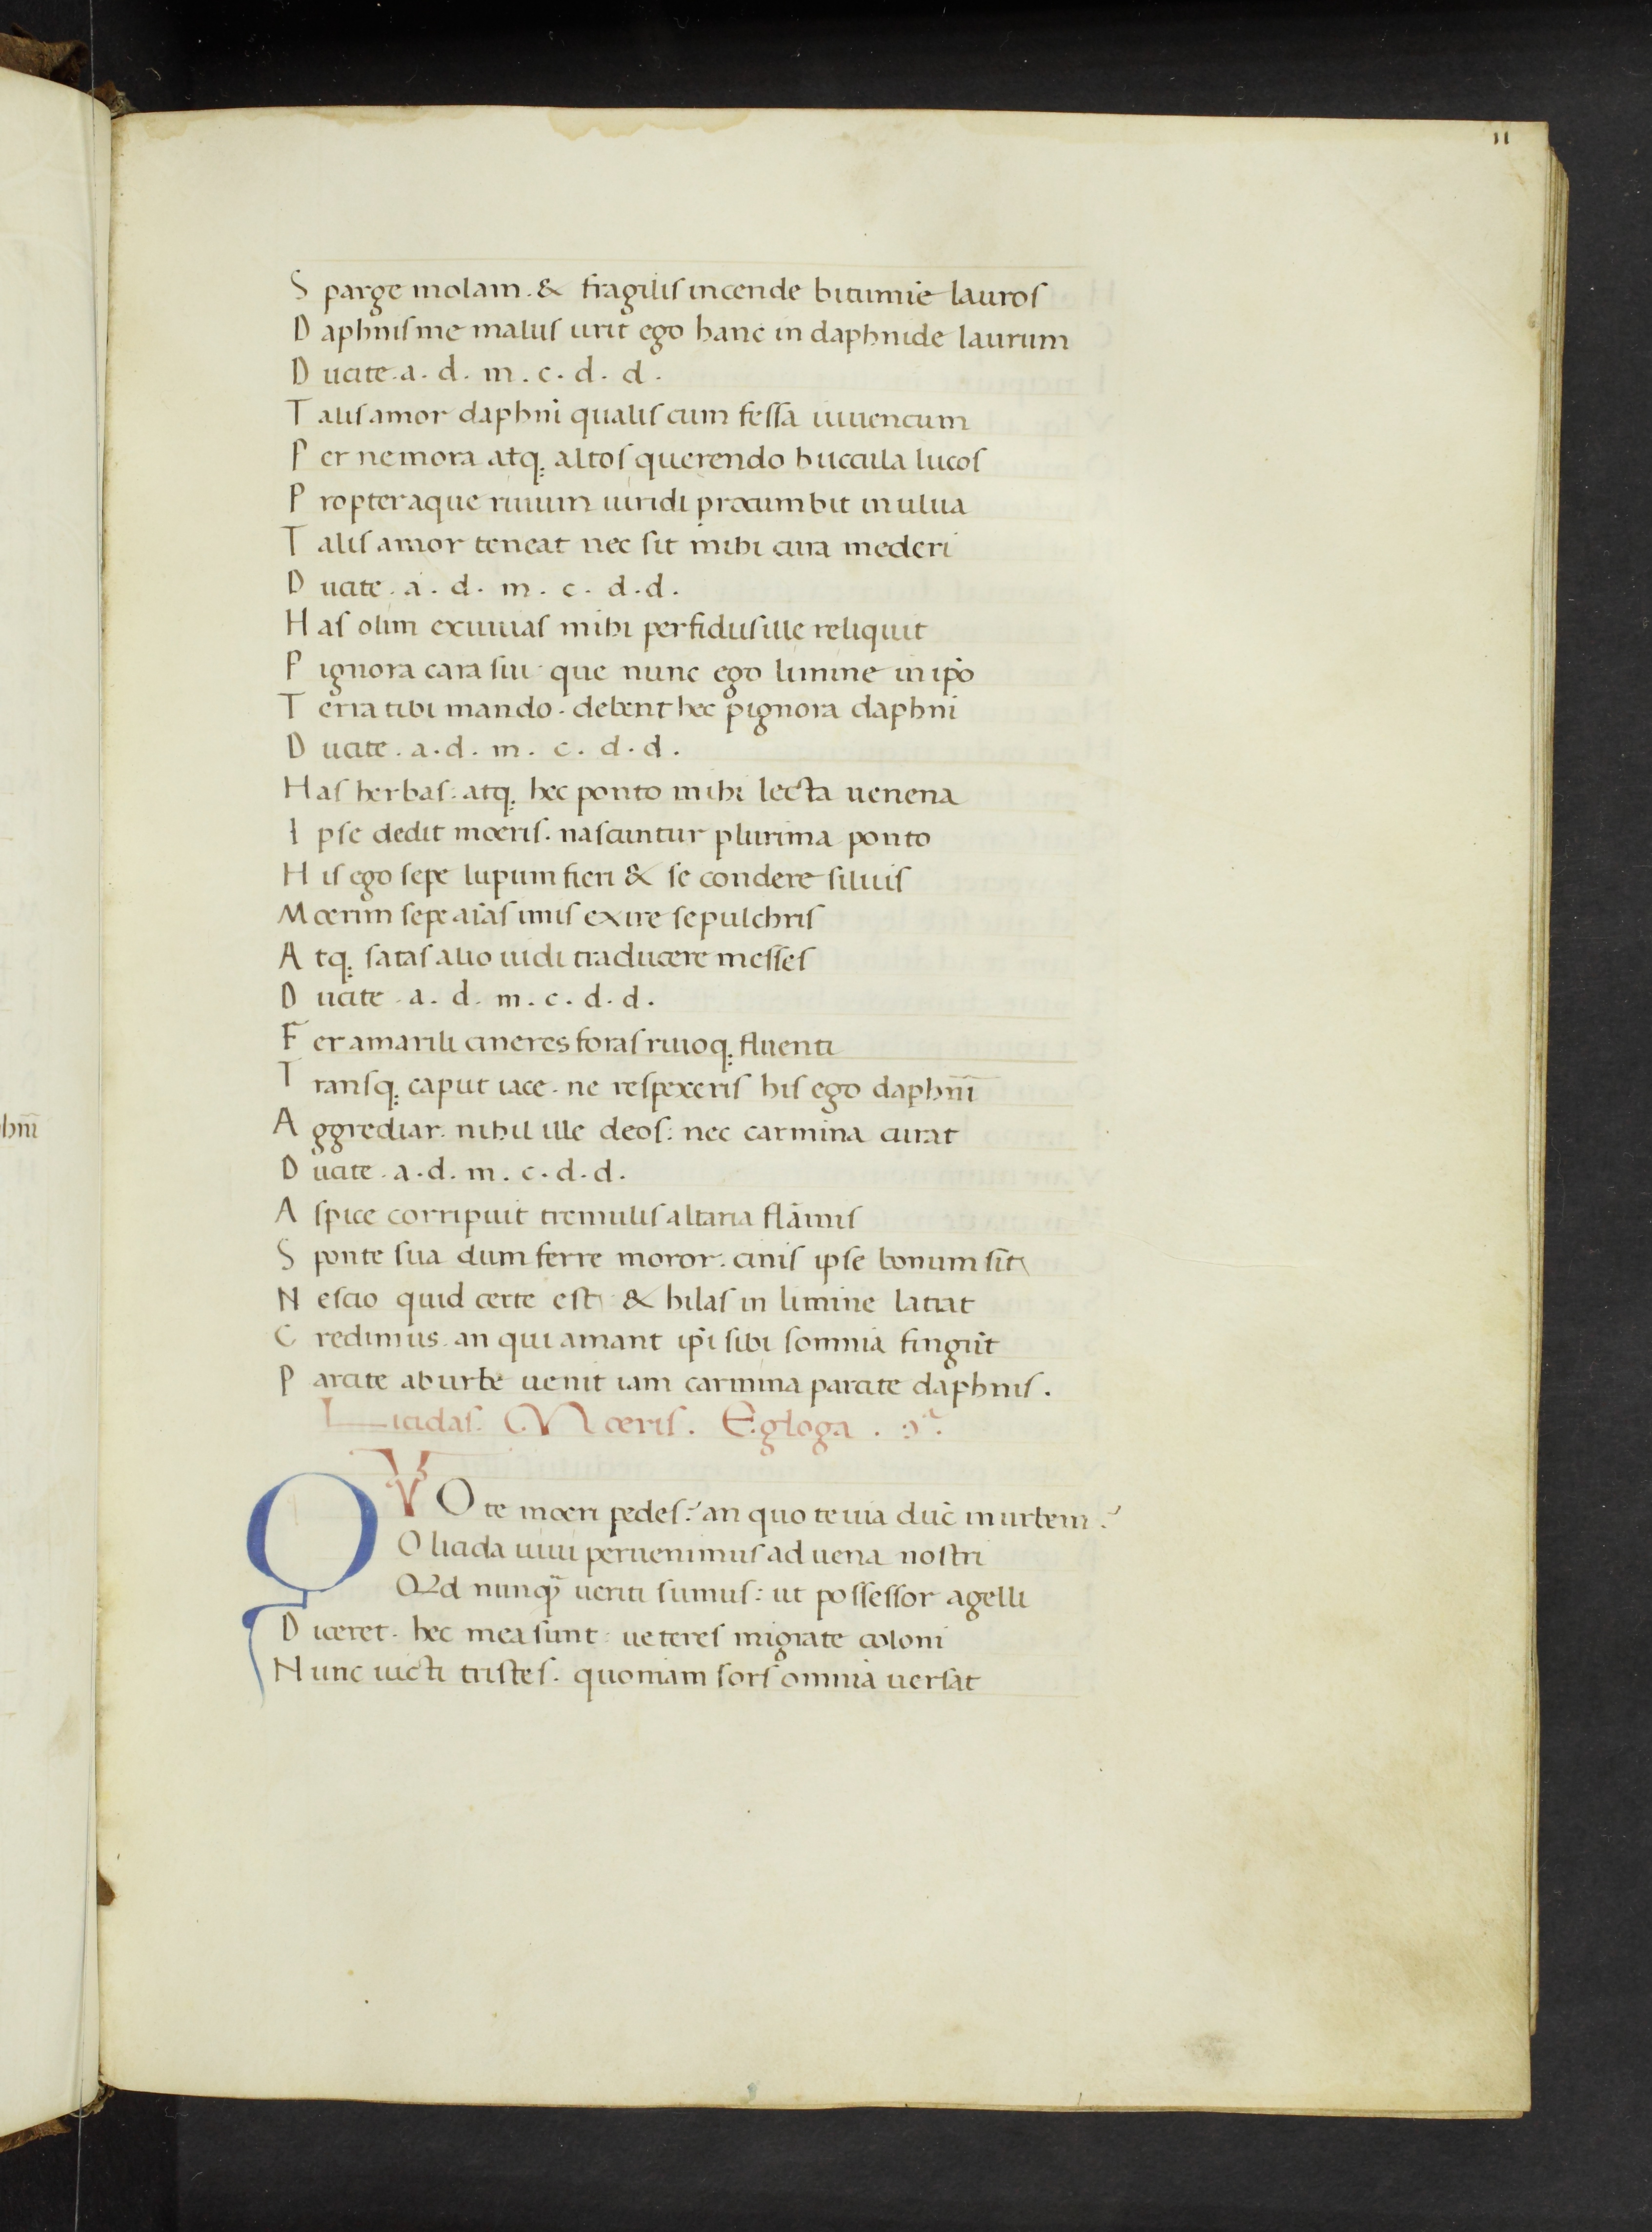 11
Sparge molam. & fragilis incende bitumīe lauros
Daphnis me malus urit ego hanc in daphnide laurum
Ducite. a. d. m. c. d. d.
Talis amor daphni qualis cum fessa iuuencum
Per nemora atq; altos querendo buccula lucos
Propter aque riuum uiridi procumbit in ulua
Talis amor teneat nec sit mihi cura mederi
Ducite. a. d. m. c. d. d.
Has olim exuuias mihi perfidus ille reliquit
Pignora cara sui. que nunc ego limine in ip̄o
Terra tibi mando. debent hec pignora daphni
Ducite. a. d. m. c. d. d.
Has herbas: atq; hec ponto mihi lecta uenena
Ipse dedit moeris. nascuntur plurima ponto
His ego sepe lupum fieri & se condere siluis
Moerim sepe aīas imis exire sepulchris
Atq; satas alio uidi traducere messes
Ducite. a. d. m. c. d. d.
Fer amarili cineres foras riuoq; fluenti
Transq; caput iace. ne respexeris his ego daphnī
Aggrediar. nihil ille deos: nec carmina curat
Ducite. a. d. m. c. d. d.
Aspice corripuit tremulis altaria flāmis
Sponte sua dum ferre moror. cinis ipse bonum sit
Nescio quid certe est & hilas in limine latrat
Credimus. an qui amant ip̄i sibi somnia fingūt
Parcite ab urbe uenit iam carmina parcite daphnis.
Licidas. Moeris. Egloga. 9ª.
QVO te moeri pedes? an quo te uia duc̄ in urbem?
O licida uiui peruenimus aduena nostri
Qd nunqᷓ ueriti sumus: ut possessor agelli
Diceret. hec mea sunt: ueteres migrate coloni
Nunc uicti tristes. quoniam sors omnia uersat
hnī